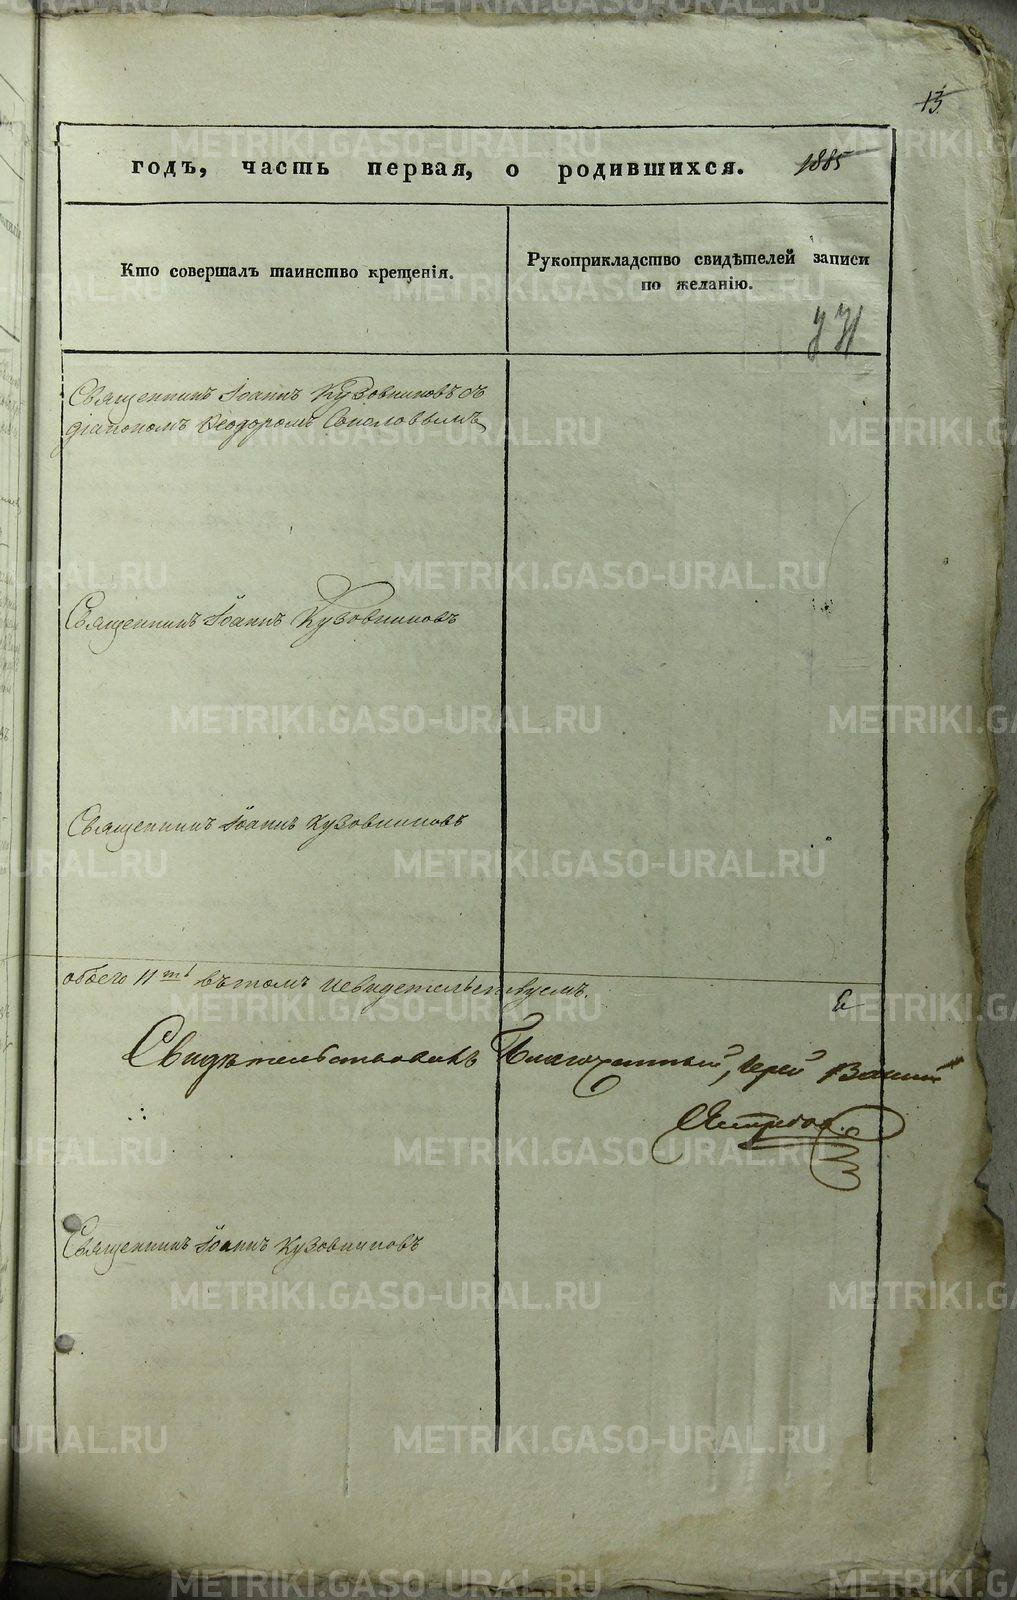 13
годъ, часть первая, о родившихся. 1885
Кто совершалъ таинство крещенія.
Рукоприкладство свидѣтелей записи
по желанію.
Священникъ Іоаннъ Кузовниковъ съ
діакономъ Ѳеодоромъ Соколовымъ
Священникъ Іоаннъ Кузовниковъ
Священникъ Іоаннъ Кузовниковъ
обоего 11ть въ томъ и свидетельствуемъ.
Свидѣтельствовалъ Благочинный, Іерей
Священникъ Іоаннъ Кузовниковъ
METRIKI.GASO-URAL.RU